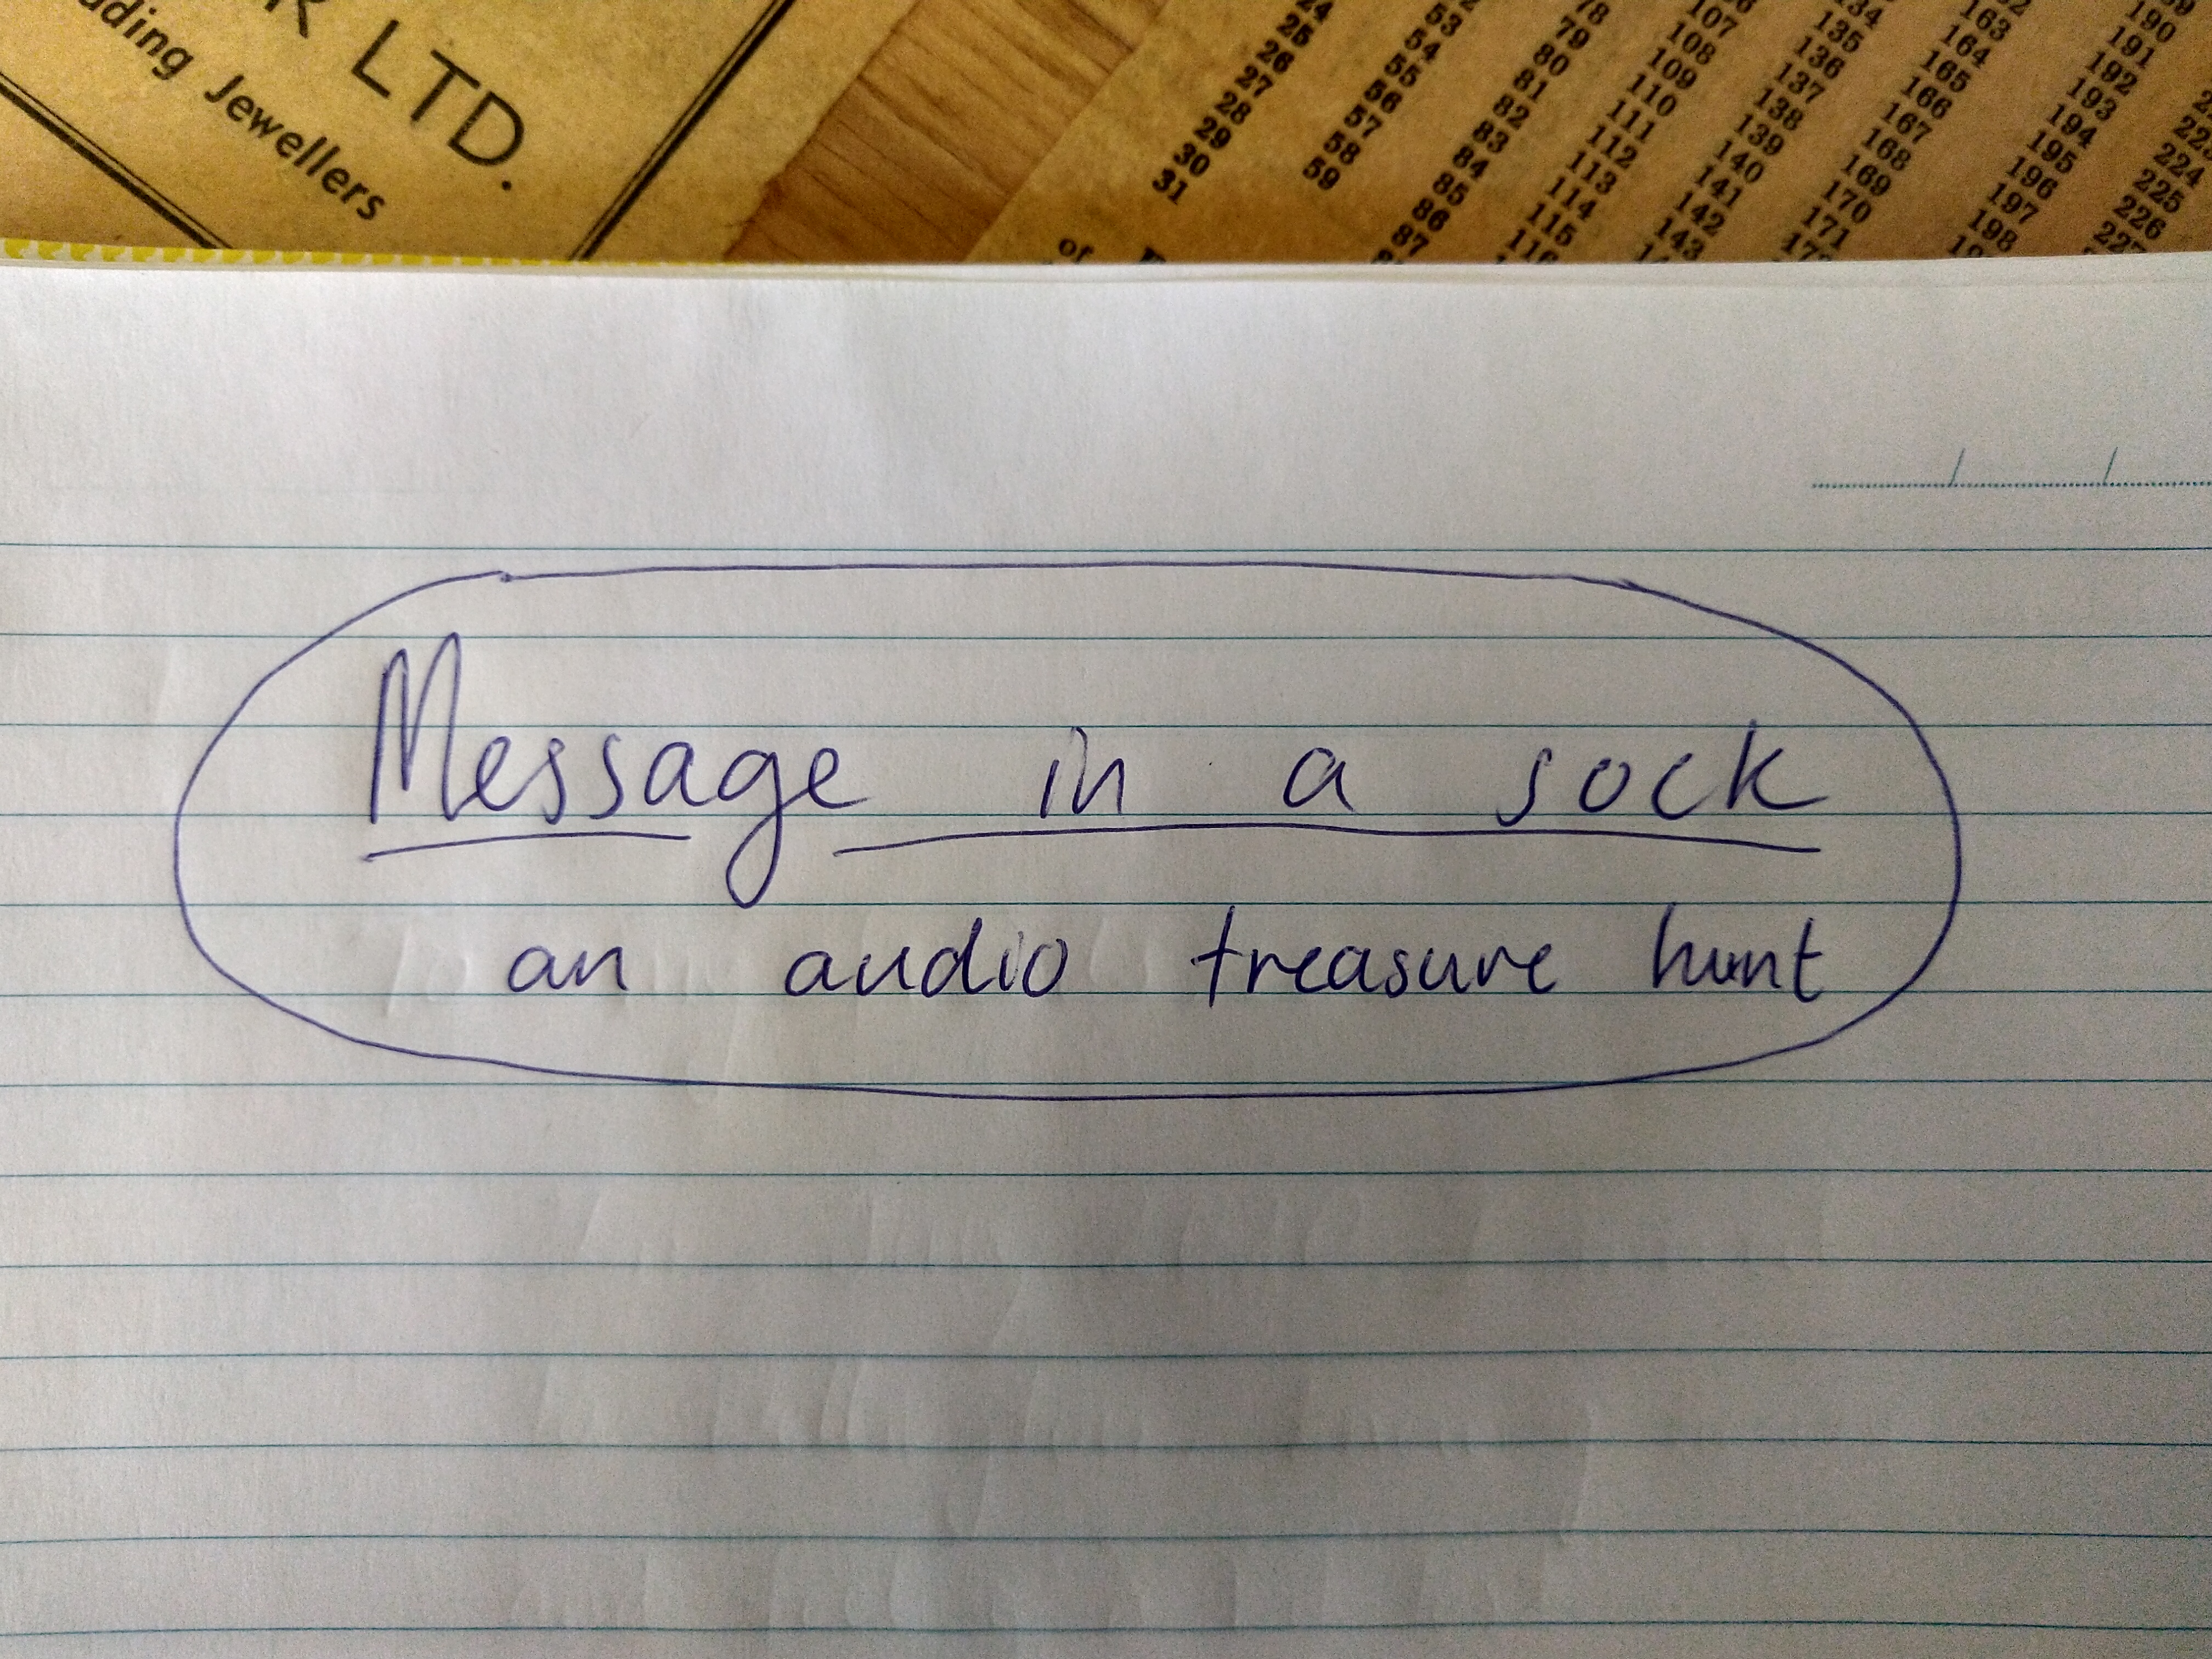 LTD.
Jewellers
24
25
26
27
28
29
30
31
53
54
55
56
57
58
59
78
79
80
81
82
83
84
85
86
87
107
108
109
110
111
112
113
114
115
116
134
135
136
137
138
139
140
141
142
143
163
164
165
166
167
168
169
170
171
190
191
192
193
194
195
196
197
198
224
225
226
of
Message in a sock
an audio treasure hunt